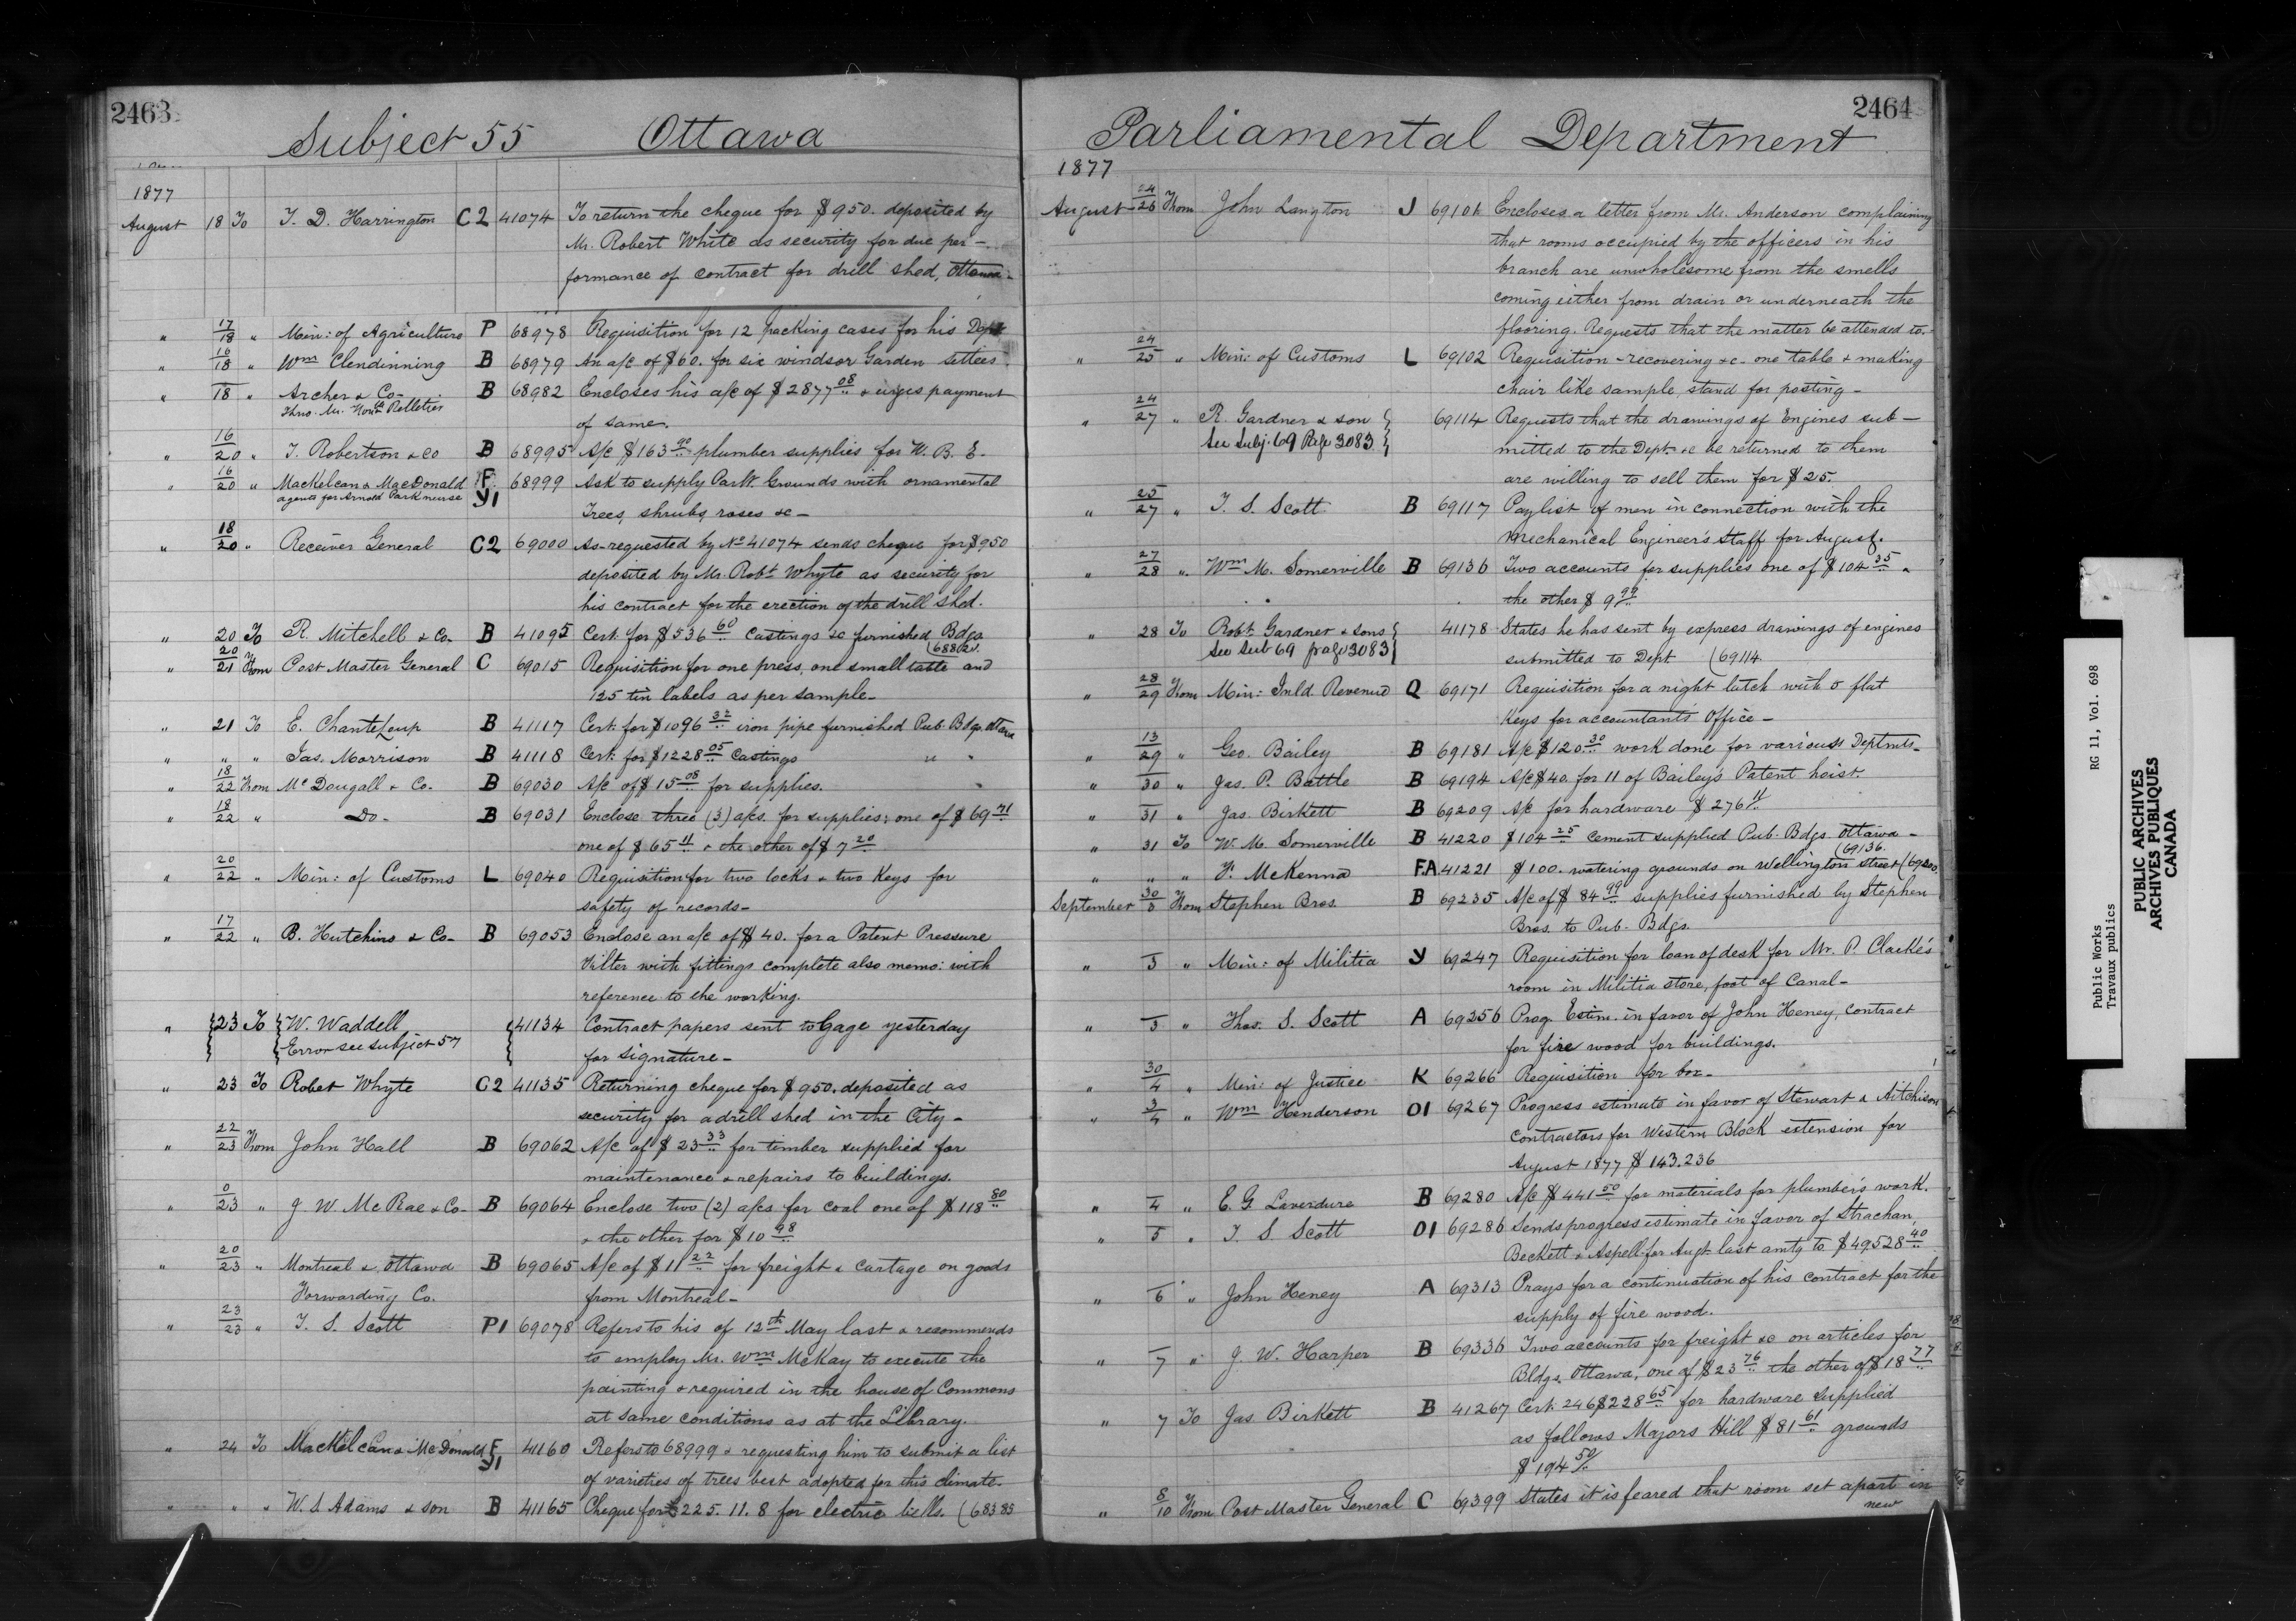 2463
Subject 55 Ottawa
1877
August 18 To T. D. Harrington C2 41074 To return the cheque for $950. deposited by
Mr. Robert White as security for due per-
formance of contract for drill shed, Ottawa-
" 17/18 " Min: of Agriculture P 68978 Requisition for 12 packing cases for his Dept
" 16/18 " Wm Clendinning B 68979 An a/c of $60. for six windsor Garden settees.
" 18 " Archer & Co- B 68982 Encloses his a/c of $2877 08 & urges payment
Thro. Mr. Honble Pelletier
of same.
" 16/20 " T. Robertson & Co B 68995 A/c $163 90 plumber supplies for W. B. E-
" 16/20 " Mackelcan & MacDonald F 68999 Ask to supply Parlt. Grounds with ornamental
agents for Arnold Park nurse Y1
Trees, shrubs, roses &c-
" 18/20 " Receiver General C2 69000 As requested by No 41074 sends cheque for $950
deposited by Mr. Robt Whyte as security for
his contract for the erection of the drill shed.
" 20 To R. Mitchell & Co- B 41095 Cert. for $536 60 Castings &c furnished Bdgs
" 20/21 From Post Master General C 69015 Requisition for one press, one small table and
125 tin labels as per sample-
" 21 To E. Chanteloup B 41117 Cert. for $1096 32 iron pipe furnished Pub. Bdgs Ottawa
" " " Jas. Morrison B 41118 Cert. for $1228 05 Castings " "
" 18/22 From McDougall & Co. B 69030 A/c of $15 08 for supplies.
" 18/22 " Do- B 69031 Enclose three (3) a/cs. for supplies; one of $69 71
one of $65 11 & the other of $7 20
" 20/22 " Min: of Customs L 69040 Requisition for two locks & two Keys for
safety of records-
" 17/22 " B. Hutchins & Co- B 69053 Enclose an a/c of $40. for a Patent Pressure
Filter with fittings complete also memo: with
reference to the working.
" 23 To W. Waddell 41134 Contract papers sent to Gage yesterday
Error see subject 57
for signature-
" 23 To Robet Whyte C2 41135 Returning cheque for $950. deposited as
security for a drill shed in the City-
" 22/23 From John Hall B 69062 A/c of $23 33 for timber supplied for
maintenance & repairs to buildings.
" 0/23 " J. W. McRae & Co- B 69064 Enclose two (2) a/cs for coal one of $118 80
& the other for $10 98
" 20/23 " Montreal & Ottawa B 69065 A/c of $11 22 for freight & cartage on goods
Forwarding Co. from Montreal-
" 23/23 " T. S. Scott P1 69078 Refers to his of 12th May last & recommends
to employ Mr. Wm McKay to execute the
painting & required in the house of Commons
at same conditions as at the Library.
" 24 To Mackelcan & McDonald F 41160 Refers to 68999 & requesting him to submit a list
Y1
of varieties of trees best adopted for this climate-
" " " W. S. Adams & son B 41165 Cheque for £225. 11. 8 for electric bells. (68383
2464
Parliamental Department
1877
August 24/26 From John Langton J 69101 Encloses a letter from Mr. Anderson complaining
that rooms occupied by the officers in his
branch are unwholesome from the smells
coming either from drain or underneath the
flooring. Requests that the matter be attended to-
" 24/25 " Min: of Customs L 69102 Requisition - recovering &c- one table & making
chair like sample, stand for posting-
" 24/27 " R. Gardner & son 69114 Requests that the drawings of Engines sub-
See Subj. 69 Page 3083
mitted to the Dept. &c be returned to them
are willing to sell them for $25.
" 25/27 " T. S. Scott B 69117 Paylist of men in connection with the
Mechanical Engineer's Staff for August.
" 27/28 " Wm M. Somerville B 69136 Two accounts for supplies one of $104 25 &
the other $9 99
" 28 To Robt. Gardner & sons 41178 States he has sent by express drawings of engines
See Sub 69 page 3083
submitted to Dept (69114
" 28/29 From Min: Inld Revenue Q 69171 Requisition for a night latch with 5 flat
Keys for accountants Office-
" 13/29 " Geo. Bailey B 69181 A/c $120 30 work done for various Deptmts-
" 30 " Jas. P. Battle B 69194 A/c $40. for 11 of Bailey's Patent hoist.
" 31 " Jas. Birkett B 69209 A/c for hardware $276 11
" 31 To W. M. Somerville B 41220 $104 25 cement supplied Pub. Bdgs Ottawa-
(69136.
" " " F. McKenna F.A. 41221 $100. watering grounds on Wellington street (69200.
September 30/3 From Stephen Bros. B 69235 A/c of $84 99 supplies furnished by Stephen
Bros. to Pub. Bdgs.
" 3 " Min: of Militia Y 69247 Requisition for loan of desk for Mr. P. Clarke's
room in Militia store, foot of Canal-
" 3 " Thos. S. Scott A 69256 Prog. Estim. in favor of John Heney, contract
for fire wood for buildings.
" 30/4 " Min: of Justice K 69266 Requisition for box-
" 3/4 " Wm Henderson O1 69267 Progress estimate in favor of Stewart & Aitchison
contractors for Western Block extension for
August 1877 $143.236
" 4 " E. G. Laverdure B 69280 A/c $441 50 for materials for plumber's work.
" 5 " T. S. Scott O1 69286 Sends progress estimate in favor of Strachan,
Beckett & Aspell for Augt. last amtg to $49528 40
" 6 " John Heney A 69313 Prays for a continuation of his contract for the
supply of fire wood.
" 7 " J. W. Harper B 69336 Two accounts for freight &c on articles for
Bldgs. Ottawa, one of $23 76 the other of $18 77
" 7 To Jas. Birkett B 41267 Cert. 246 $238 65 for hardware supplied
as follows Majors Hill $81 61 grounds
$194 50
" 8/10 From Post Master General C 69399 States it is feared that room set apart in
new
Public Works RG 11, Vol. 698
Travaux publics
PUBLIC ARCHIVES
ARCHIVES PUBLIQUES
CANADA